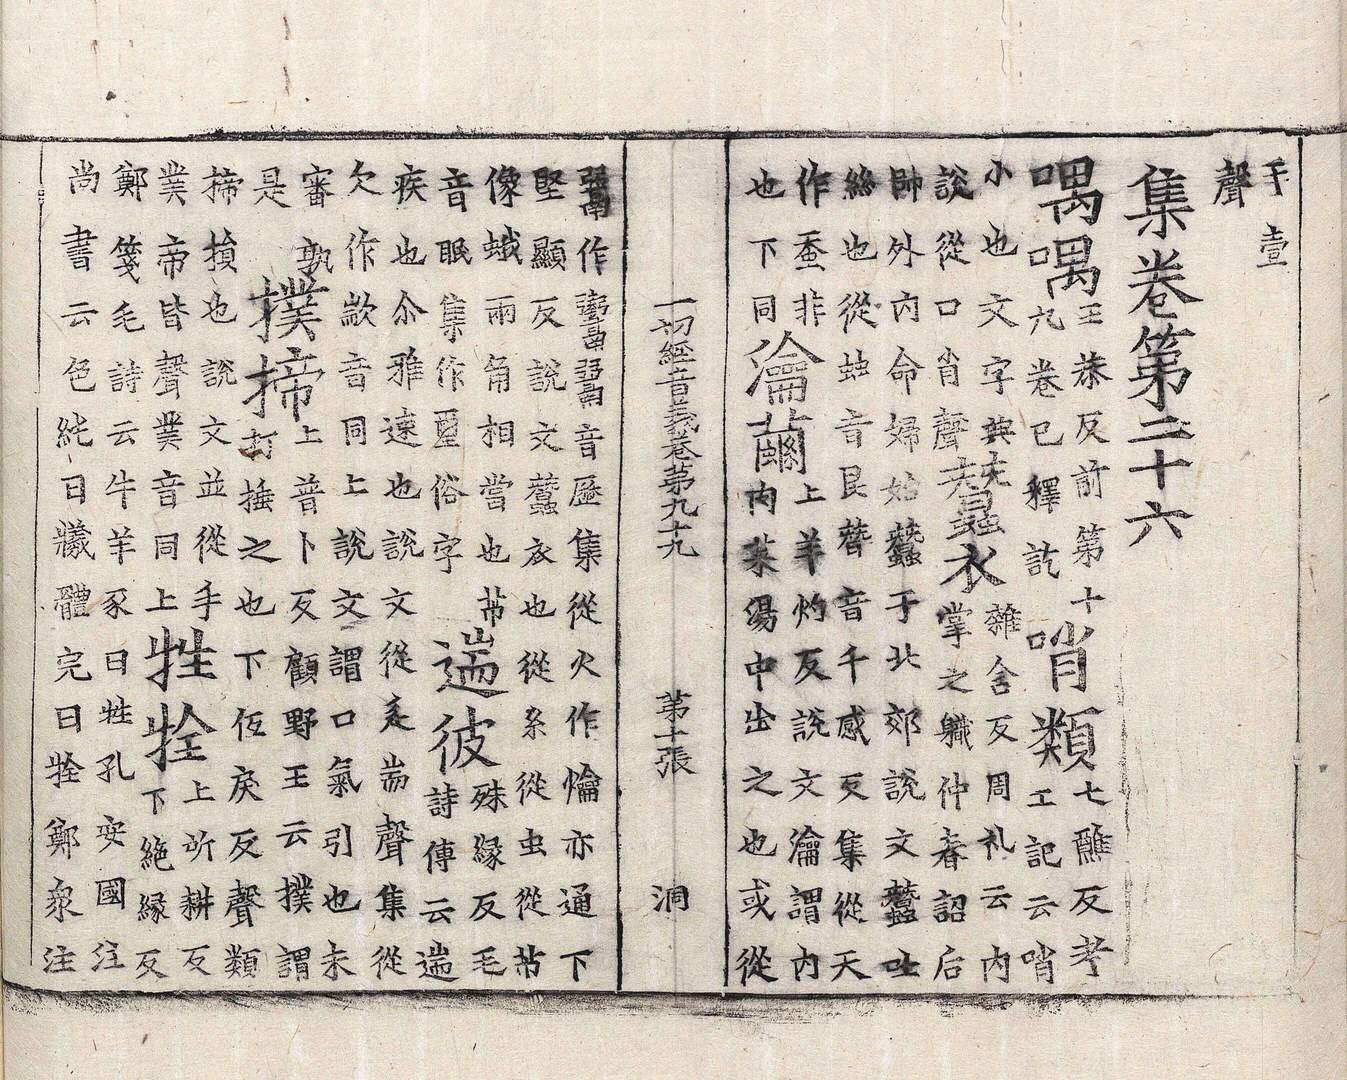 手壹
聲
集卷第二十六
喁喁玉恭反前第十
九卷已釋訖
哨類七醮反考
工記云哨
小也文字典
說從口肖聲
蠶衣雜含反周礼云內
掌之職仲春詔后
帥外內命婦始蠶于北郊說文蠶吐
絲也從䖵音艮朁音千感反集從天
作蚕非
也下同
瀹繭上羊灼反說文瀹謂內
肉菜湯中出之也或從
一切經音義卷第九十九 第十張 洞
作音歷集從火作爚亦通下
堅顯反說文蠶衣也從糸從虫從芇
像蛾兩角相當也芇
音眠集作璽俗字
遄彼殊緣反毛
詩傳云遄
疾也尒雅速也說文從辵耑聲集從
欠作歂音同上說文謂口氣引也未
審孰
是
撲揥上普卜反顧野王云撲謂
打捶之也下伍戾反聲類
揥損也說文並從手
菐帝皆聲菐音同上
牲牷上所耕反
下絶緣反
鄭箋毛詩云牛羊豕曰牲孔安國注
尚書云色純曰犧體完曰牷鄭衆注